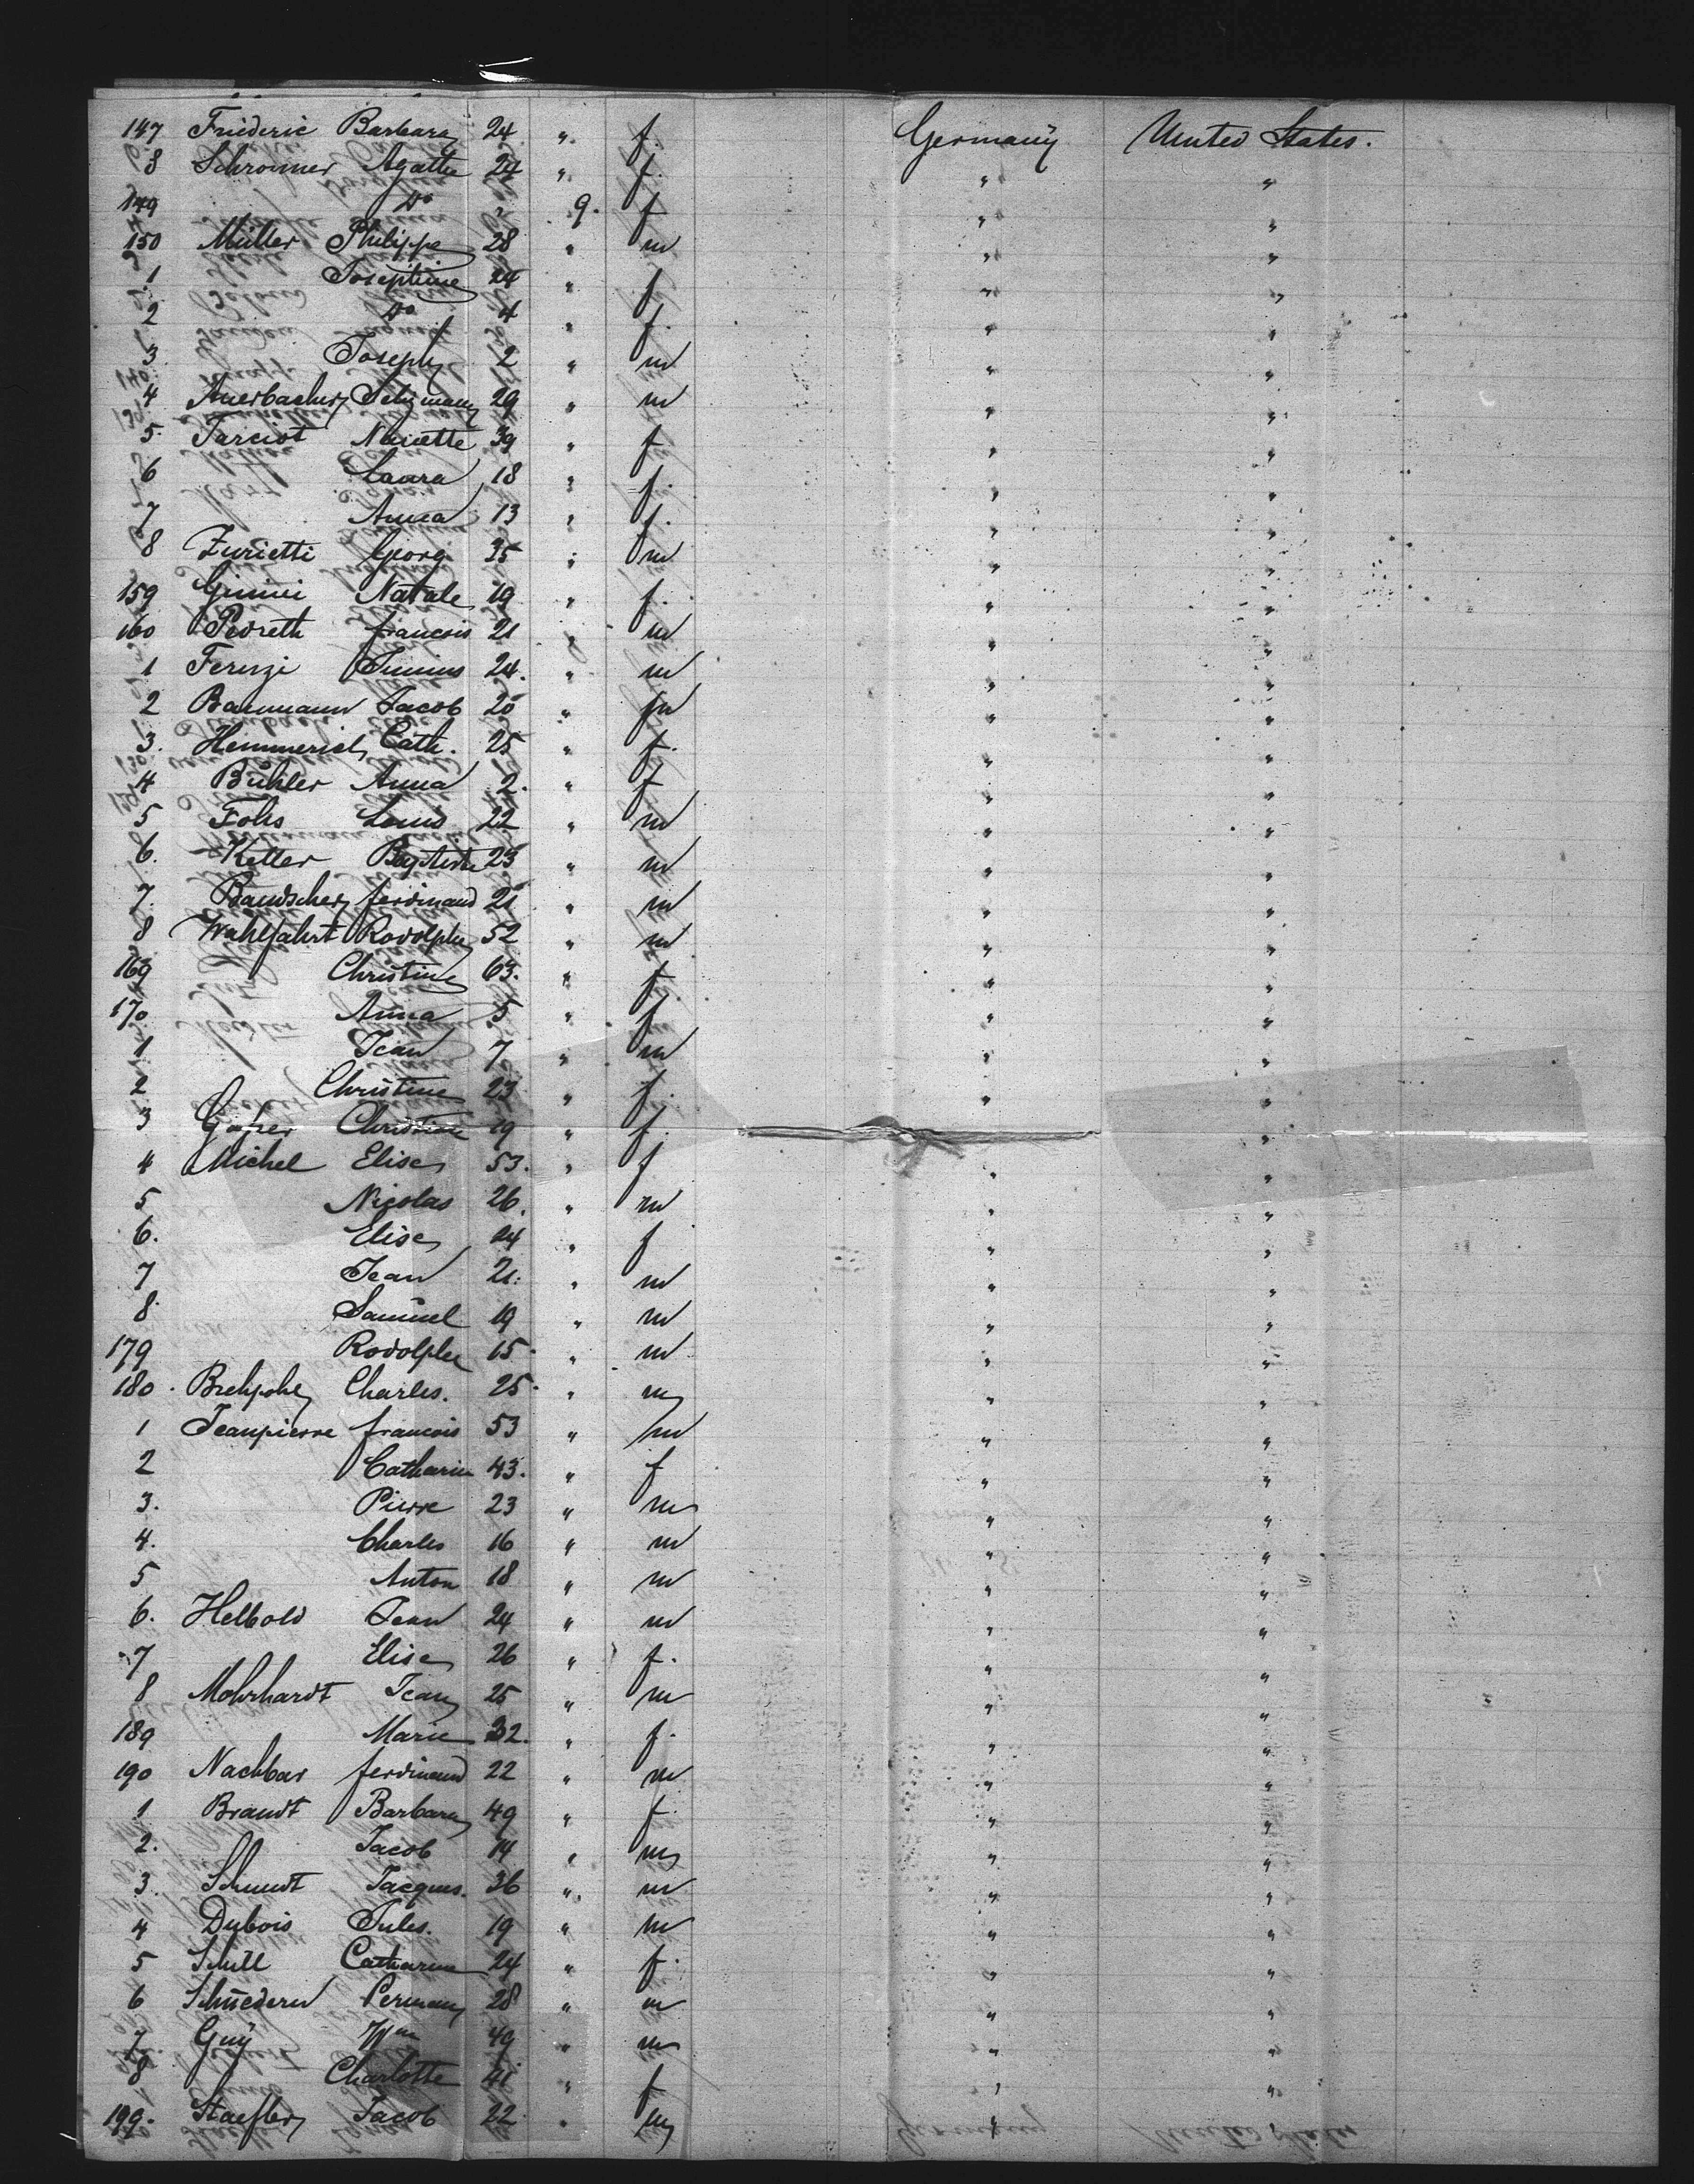 147 Friederic Barbara 24 " f. Germany United States.
8 Schronner Agathe 24 " f. " "
149 Do " 9. f " "
150 Müller Philippe 28 " m " "
1 Josephine 24 " f " "
2 Do 4 " f. " "
3 Joseph 2 " m " "
4 Auerbacher 29 " m " "
5. Tarciot Nanette 39 " f " "
6 Laura 18 " f. " "
7 Anna 13 " f. " "
8 Zurietti Georg 35 " m " "
159 Natale 19 " f. " "
160 Pedreth francois 21 " m " "
1 Ferenzi 24. " m " "
2 Baumann Jacob 20 " m " "
3. Hemmerich Cath. 25 " f. " "
4 Bühler Anna 2. " f " "
5 Fohs Louis 22 " m " "
6. Keller Baptiste 23 " m " "
7. Baudscher ferdinand 21 " m " "
8 Wahlfahrt Rodolphe 52 " m " "
169 Christine 63. " f " "
170 Anna 5 " f " "
1 Jean 7 " m " "
2 Christine 23 " f. " "
3 Christine 19 " f. " "
4 Michel Elise 53. " f " "
5 Nicolas 26. " m " "
6. Elise 24 " f " "
7 Jean 21. " m " "
8. Samuel 19 " m " "
179 Rodolphe 15. " m " "
180. Charles. 25. " m " "
1 Jeanpierre francois 53 " m " "
2 Catharin 43. " f " "
3. Pierre 23 " m " "
4. Charles 16 " m " "
5 Anton 18 " m " "
6. Helbold Jean 24 " m " "
7 Elise 26 " f. " "
8 Mohrhardt Jean 25 " m " "
189 Marie 32. " f. " "
190 Nachbar ferdinand 22 " m " "
1 Brandt Barbara 49 " f. " "
2. Jacob 14 " m " "
3. Schmidt Jacques. 36 " m " "
4 Dubois Jules. 19 " m " "
5 Schill Catharine 24 " f. " "
6 Schniedern 28 " m " "
7 Guÿ Wm 49 " m " "
8 Charlotte 41 " f " "
199. Staefler Jacob 22 " m "